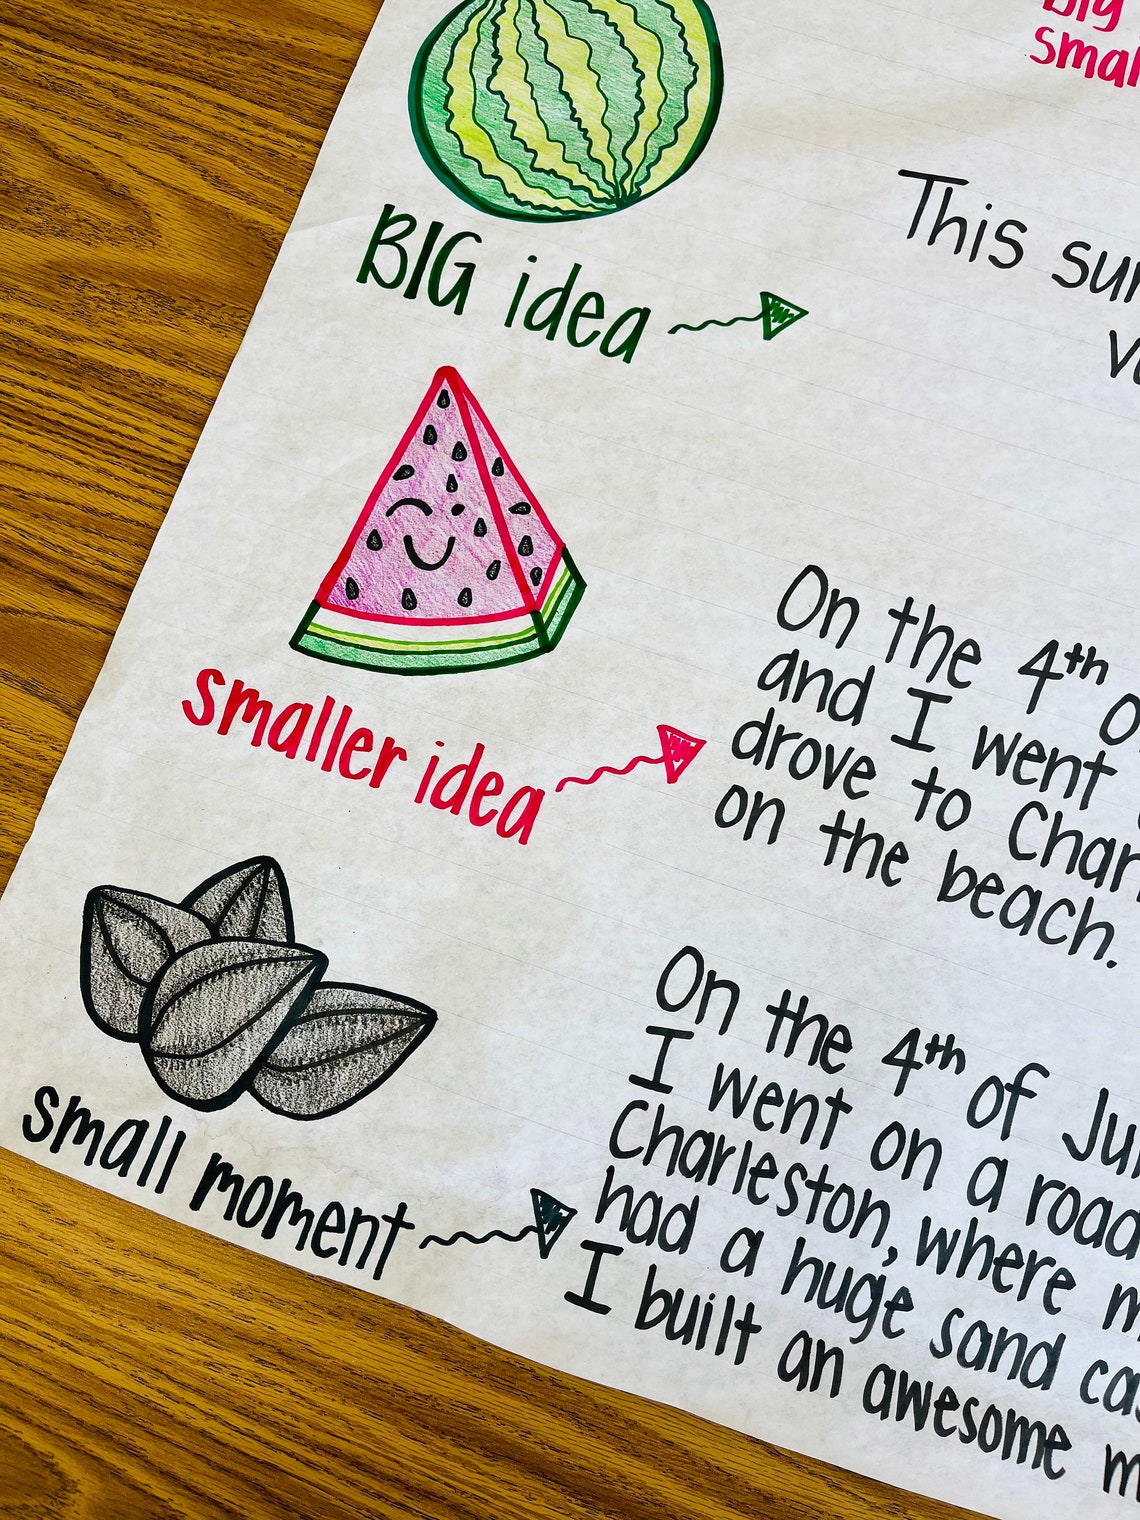 small
BIG idea
This
smaller idea
On the 4th
and I went
drove to
on the beach.
small moment
On the 4th of
I went on a road
Charleston, where
had a huge sand
I built an awesome